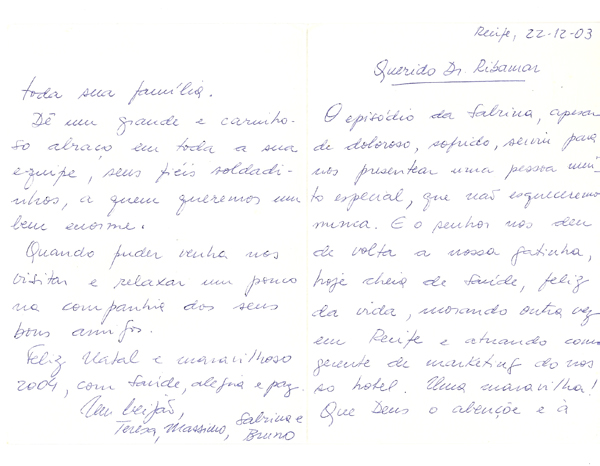 Recife, 22-12-03
Querido Dr. Ribamar
O episódio da Sabrina, apesar
de doloroso, sofrido, serviu para
nos presentear uma pessoa mui-
to especial, que não esqueceremos
nunca. E o senhor nos deu
de volta a nossa gatinha,
hoje cheia de saúde, feliz
da vida, morando outra vez
em Recife e atuando como
gerente de marketing do nos-
so hotel. Uma maravilha!
Que Deus o abençõe e à
toda sua família.
Dê um grande e carinho-
so abraço em toda a sua
equipe, seus fiéis soldadi-
nhos, a quem queremos um
bem enorme.
Quando puder venha nos
visitar e relaxar um pouco
na companhia dos seus
bons amigos.
Feliz Natal e maravilhoso
2004, com saúde, alegria e paz.
Um beijão,
Teresa, Massimo, Sabrina e
Bruno